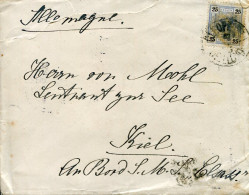 Allemagne.
25 25
Herrn von Mohl
Leutnant zur See
Kiel.
An Bord S. M. S.